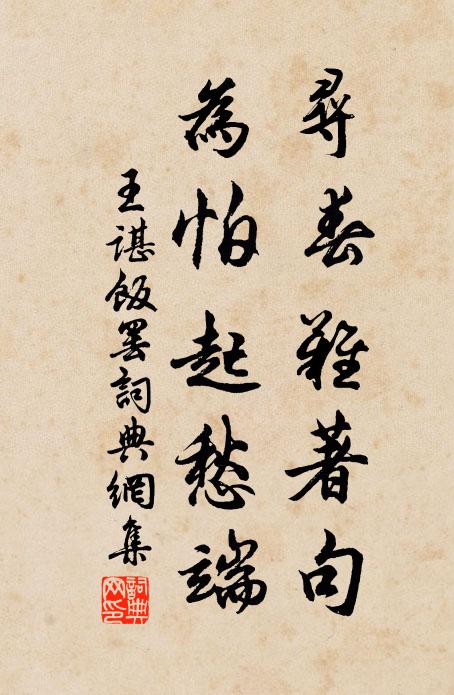 尋春難著句
為怕起愁端
王諶飯罷詞典網集
詞典網印